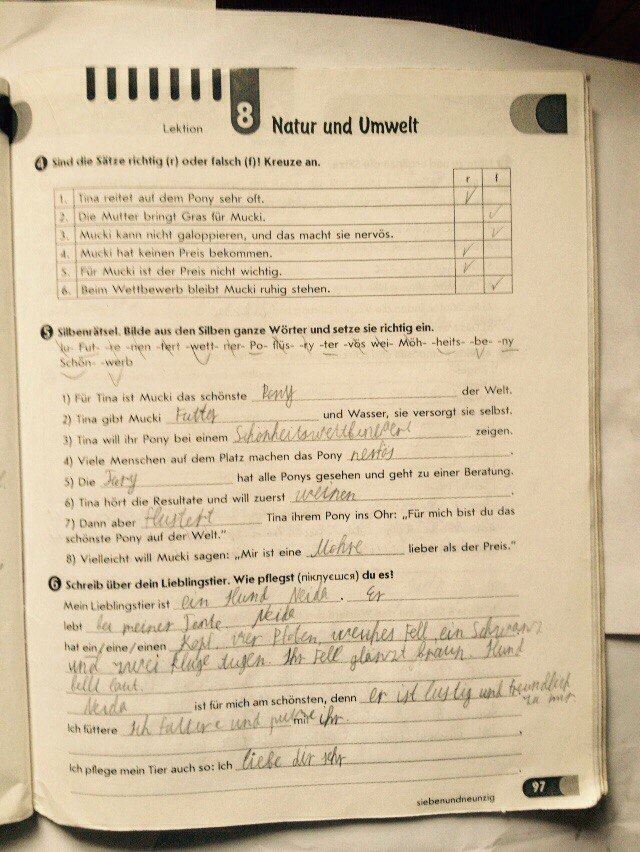 Lektion 8 Natur und Umwelt
4 Sind die Sätze richtig (r) oder falsch (f)! Kreuze an.
r f
1. Tina reitet auf dem Pony sehr oft. ✓
2. Die Mutter bringt Gras für Mucki. ✓
3. Mucki kann nicht galoppieren, und das macht sie nervös. ✓
4. Mucki hat keinen Preis bekommen. ✓
5. Für Mucki ist der Preis nicht wichtig. ✓
6. Beim Wettbewerb bleibt Mucki ruhig stehen. ✓
5 Silbenrätsel. Bilde aus den Silben ganze Wörter und setze sie richtig ein.
Ju- Fut- -re -nen -tert -wett- ner- Po- flüs- -ry -ter -vös wei- Möh- -heits- -be- -ny
Schön- -werb
1) Für Tina ist Mucki das schönste Pony der Welt.
2) Tina gibt Mucki Futter und Wasser, sie versorgt sie selbst.
3) Tina will ihr Pony bei einem zeigen.
4) Viele Menschen auf dem Platz machen das Pony .
5) Die hat alle Ponys gesehen und geht zu einer Beratung.
6) Tina hört die Resultate und will zuerst weinen .
7) Dann aber flüstert Tina ihrem Pony ins Ohr: „Für mich bist du das
schönste Pony auf der Welt.“
8) Vielleicht will Mucki sagen: „Mir ist eine Möhre lieber als der Preis.“
6 Schreib über dein Lieblingstier. Wie pflegst (піклуєшся) du es!
Mein Lieblingstier ist ein Hund Neida . Er
lebt bei meiner Tante. Neida
hat ein/eine/einen Kopf, vier Pfoten, weiches Fell, ein Schwanz
und zwei kluge Augen. Ihr Fell glänzt braun. Hund
bellt laut.
Neida ist für mich am schönsten, denn er ist lustig und freundlich
zu mir
Ich füttere Ich füttere und mit ihr.
Ich pflege mein Tier auch so: Ich liebe der sehr
97
siebenundneunzig